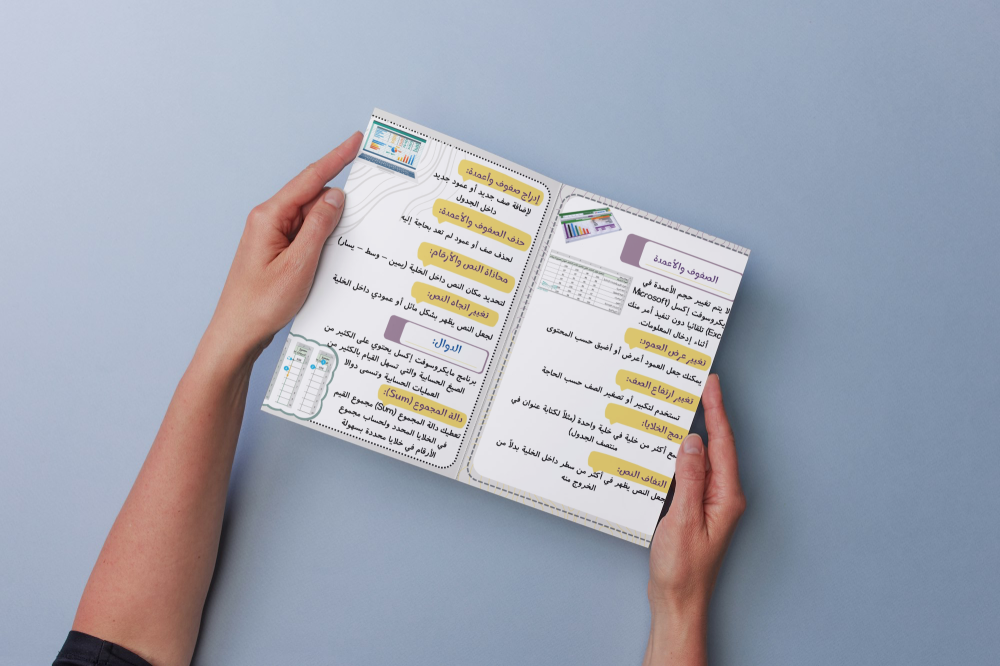 الصفوف والأعمدة
لا يتم تغيير حجم الأعمدة في
مايكروسوفت إكسل (Microsoft
Exc) تلقائيا دون تنفيذ أمر منك
أثناء إدخال المعلومات
تغيير عرض العمود:
يمكنك جعل العمود أعرض أو أضيق حسب المحتوى
تغيير ارتفاع الصف:
تستخدم لتكبير أو تصغير الصف حسب الحاجة
دمج الخلايا:
أكثر من خلية في خلية واحدة (مثلاً لكتابة عنوان في
منتصف الجدول)
التفاف النص:
جعل النص يظهر في أكثر من سطر داخل الخلية بدلاً من
الخروج منه
إدراج صفوف وأعمدة:
لإضافة صف جديد أو عمود جديد
داخل الجدول
حذف الصفوف والأعمدة:
لحذف صف أو عمود لم تعد بحاجة إليه
محاذاة النص والأرقام:
لتحديد مكان النص داخل الخلية (يمين – وسط – يسار)
تغيير اتجاه النص:
لجعل النص يظهر بشكل مائل أو عمودي داخل الخلية
الدوال:
برنامج مايكروسوفت إكسل يحتوي على الكثير من
الصيغ الحسابية والتي تسهل القيام بالكثير من
العمليات الحسابية وتسمى دوالا
دالة المجموع (Sum):
تعطيك دالة المجموع (Sum) مجموع القيم
في الخلايا المحدد ولحساب مجموع
الأرقام في خلايا محددة بسهولة